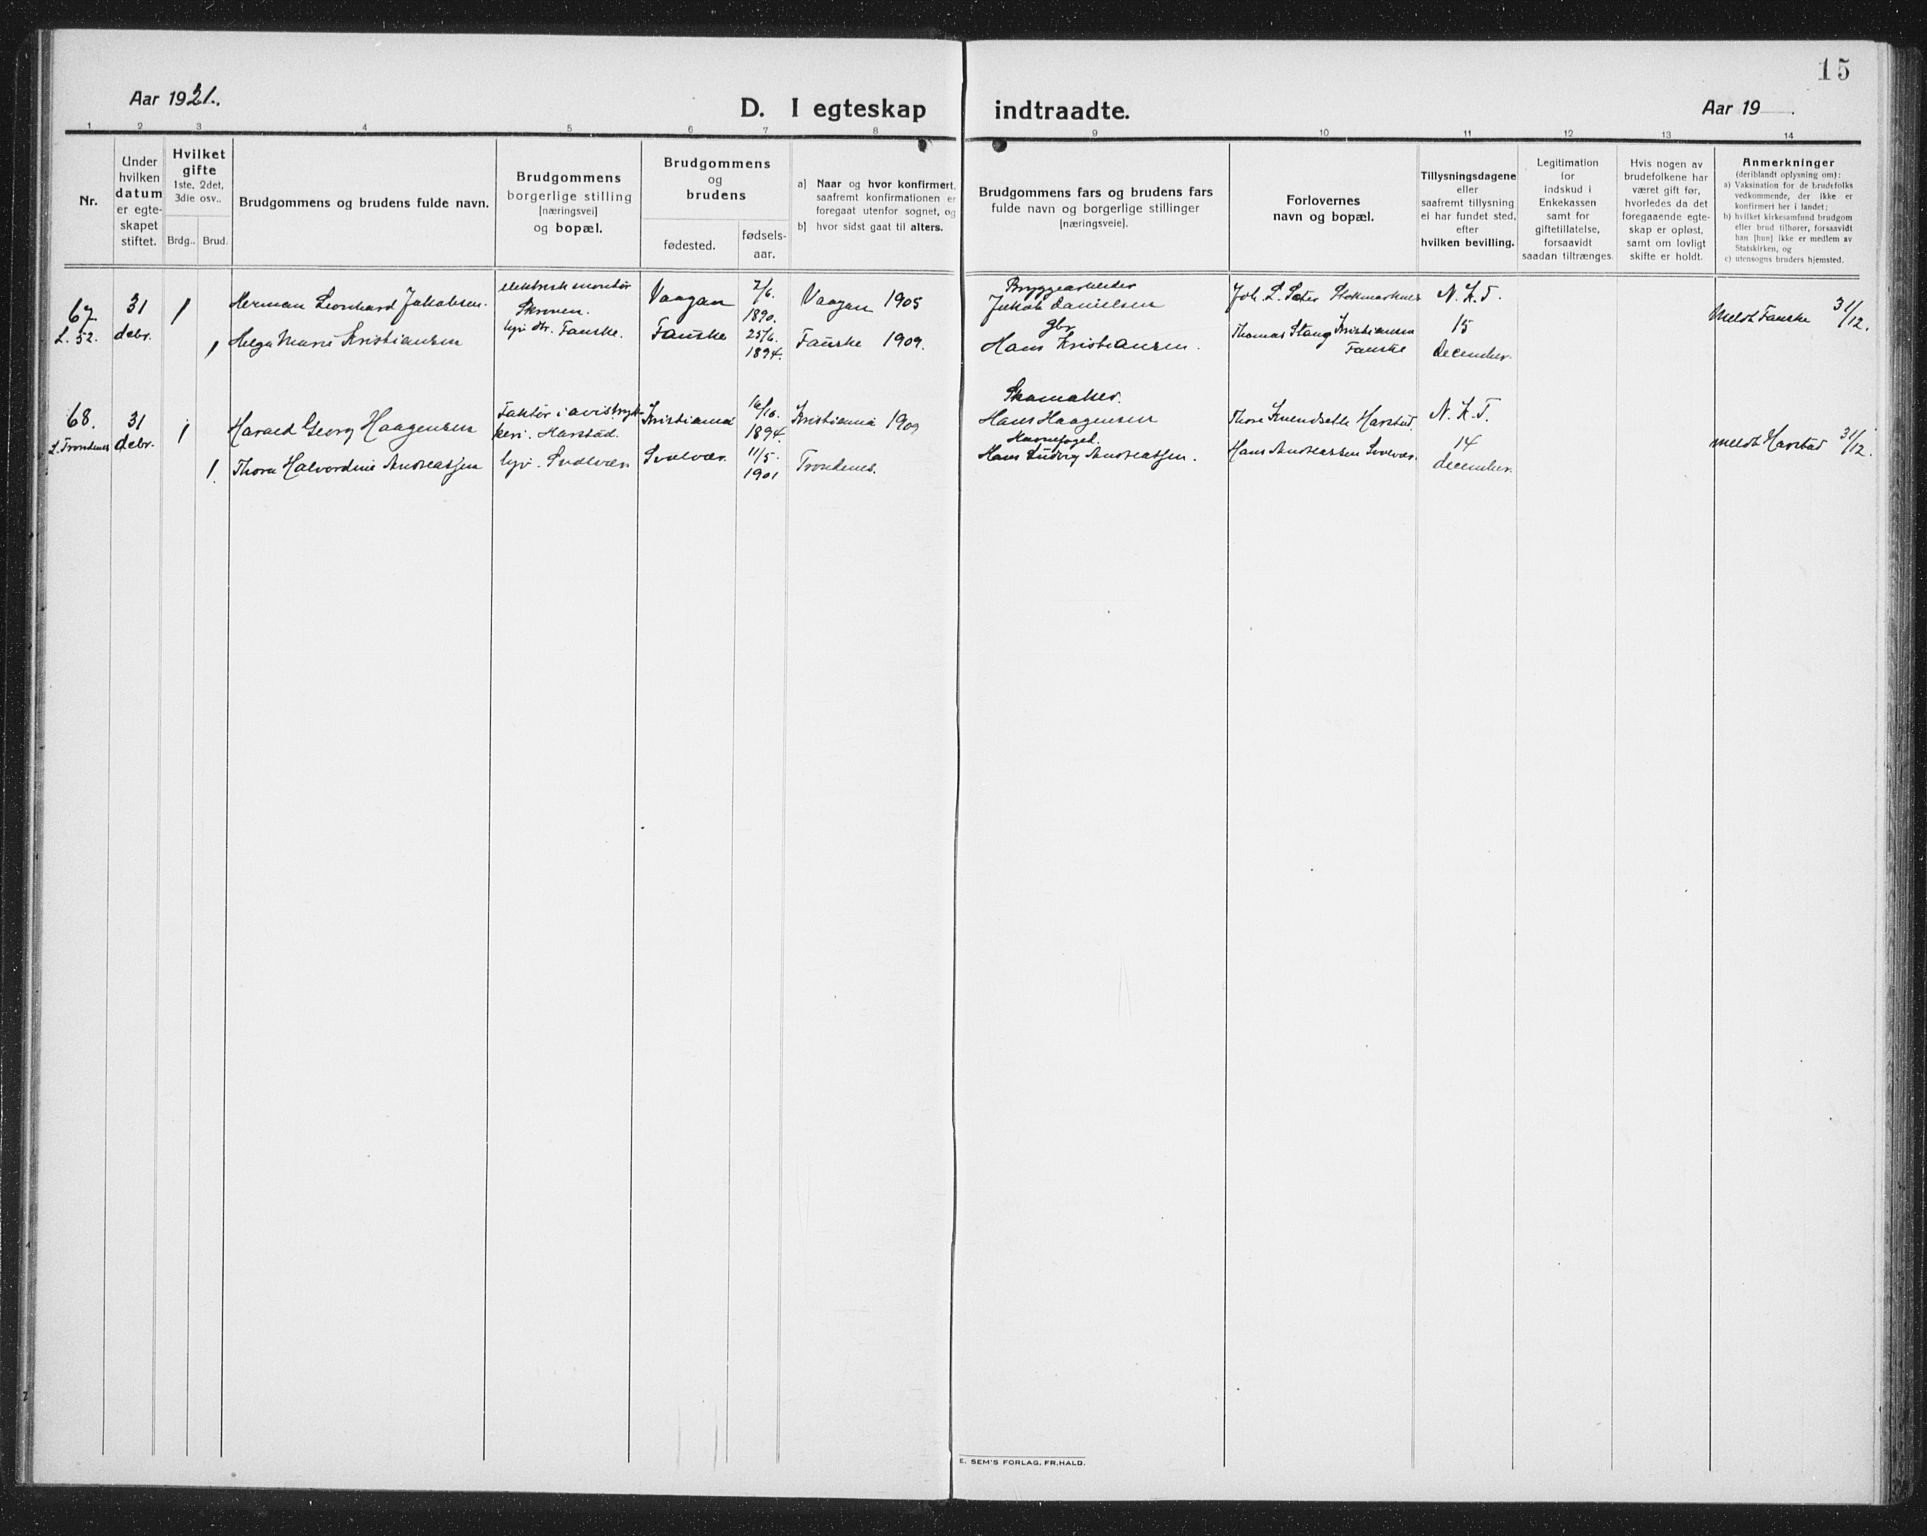 15
Aar 1921.
D. I egteskap indtraadte.
Aar 19 .
1 2 3 4 5 6 7 8 9 10 11 12 13 14
Nr.
Under
hvilken
datum
er egte-
skapet
stiftet.
Hvilket
gifte
1ste, 2det,
3die osv..
Brdg.. Brud.
Brudgommens og brudens fulde navn.
Brudgommens
borgerlige stilling
[næringsvei]
og bopæl.
Brudgommens
og
brudens
fødested.
fødsels-
aar.
a) Naar og hvor konfirmert,
saafremt konfirmationen er
foregaat utenfor sognet, og
b) hvor sidst gaat til alters.
Brudgommens fars og brudens fars
fulde navn og borgerlige stillinger
[næringsveie].
Forlovernes
navn og bopæl.
Tillysningsdagene
eller
saafremt tillysning
ei har fundet sted,
efter
hvilken bevilling.
Legitimation
for
indskud i
Enkekassen
samt for
giftetillatelse,
forsaavidt
saadan tiltrænges.
Hvis nogen av
brudefolkene har
været gift før,
hvorledes da det
foregaaende egte-
skap er opløst,
samt om lovligt
skifte er holdt.
Anmerkninger
(deriblandt oplysning om):
a) Vaksination for de brudefolks
vedkommende, der ikke er
konfirmert her i landet;
b) hvilket kirkesamfund brudgom
eller brud tilhører, forsaavidt
han [hun] ikke er medlem av
Statskirken, og
c) utensogns bruders hjemsted.
67
L. 52.
31
debr.
1
1
Herman Leonhard Jakobsen.
Helga Marie Kristiansen
elektrisk montør
Skroven.
Fauske.
Vaagan
Fauske
2/6.
1890.
25/6.
1894.
Vaagan 1905
Fauske 1909.
Bryggearbeider
Jakob Danielsen
gbr
Hans Kristiansen.
Joh. L. Sæter Stokmarknes
Thomas Stang Kristiansen
Fauske
N. K. T.
15
december.
Meldt Fauske 31/12.
68.
L. Trondenes
31
debr.
1
1.
Harald Georg Haagensen
Thora Halvordine Andreassen
Faktor i avistryk-
keri. Harstad.
Svolvær
Kristiania
Svolvær.
16/10.
1894.
11/5.
1901
Kristiania 1909
Trondenes.
Skomaker.
Hans Haagensen
Havnefoged.
Hans Ludvig Andreassen.
Thor Knendsetle Harstad.
Hans Andreassen Svolvær.
N. K. T.
14
december.
meldt Harstad 31/12.
E. SEM'S FORLAG, FR.HALD.